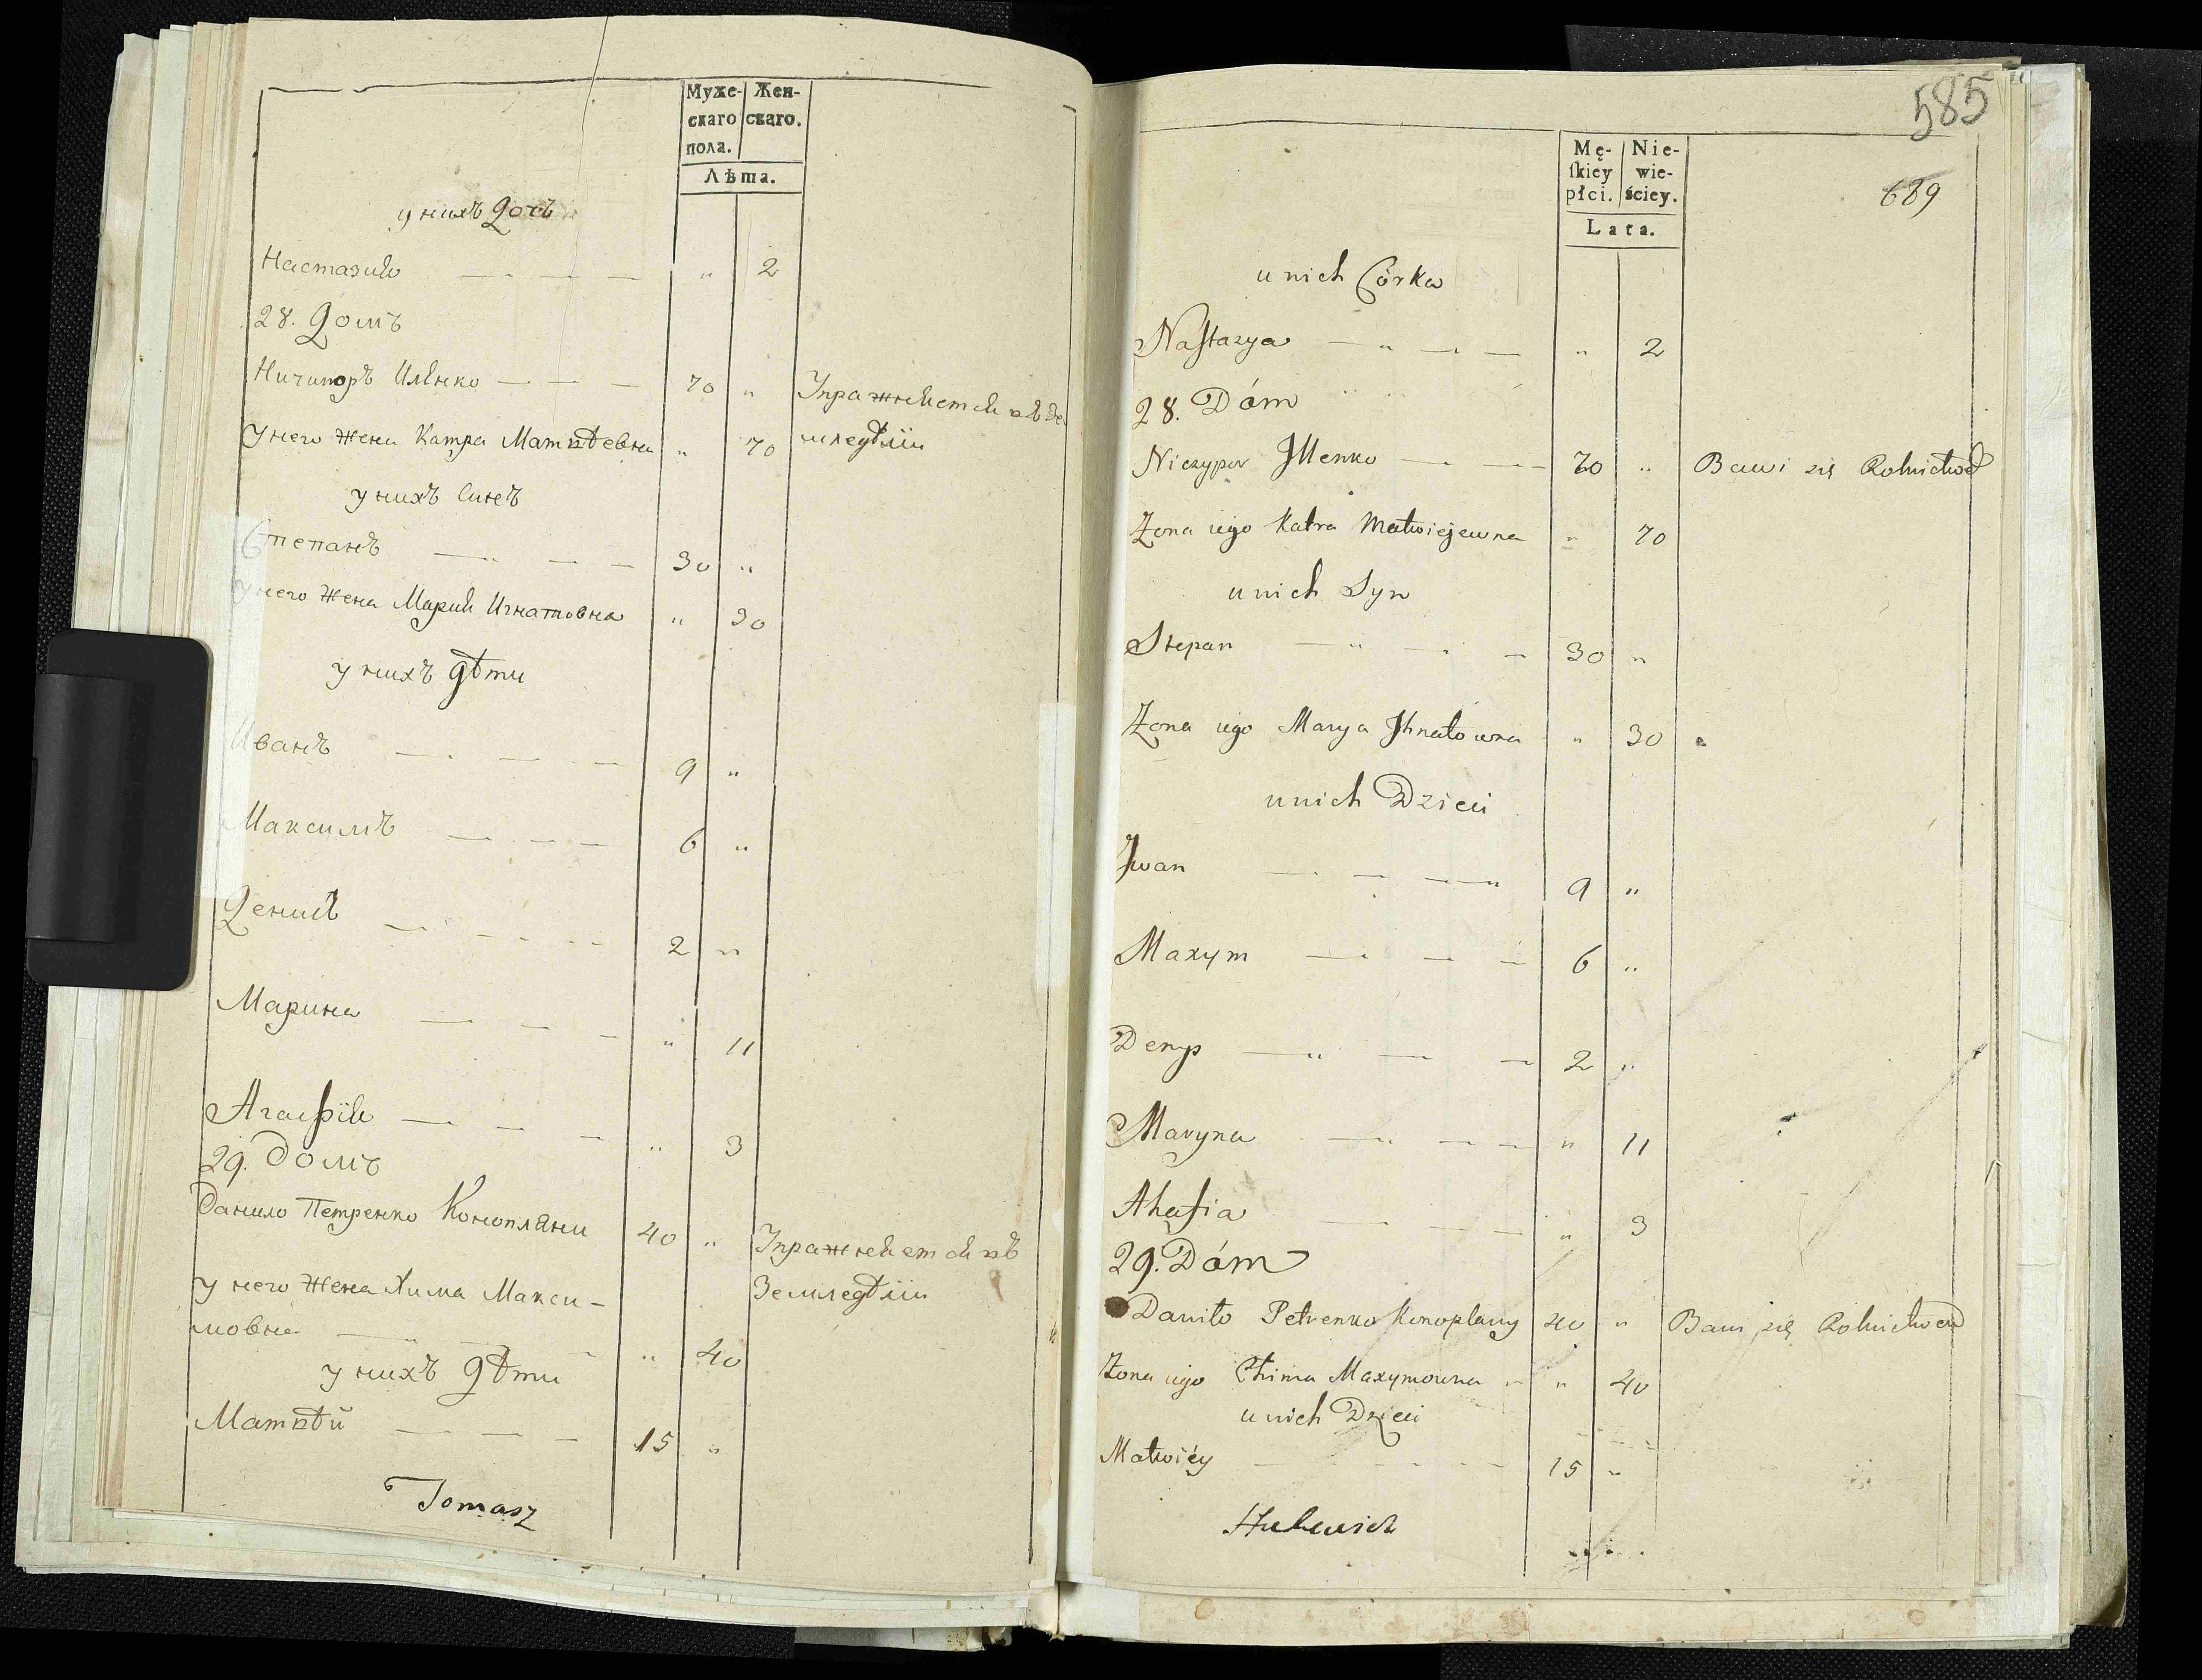 Муже- Жен-
скаго скаго.
пола.
Лѣта.
у нихъ Дочь
Настазия — — — " 2
28. Домъ
Ничипоръ Илѣнко — — — 70 " Упражняется въ зе
У него жена Катра Матвѣевна " 70 мледѣлiи
у нихъ Синъ
Степанъ — — — 30 "
у него жена Мария Игнатовна " 30
у нихъ дѣти
Иванъ — — — 9 "
Максимъ — — — 6 "
Денисъ — — — 2 "
Марина — — — " 11
Агафiя — — — " 3
29. Домъ
Данило Петренко Конопляни 40 " Упражняется въ
у него жена Хима Макси- Земледѣлiи
мовна — — — " 40
у нихъ дѣти
Матвѣй — — — 15 "
Tomasz
585
Mę- Nie-
ſkiey wie-
płci. ściey.
689
Lata.
u nich Córka
Naſtazya — " — — " 2
28. Dóm
Niczypor Illenko — — 70 " Bawi się Rolnictwē
Żona iego Katra Matwiejewna " 70
u nich Syn
Stepan — " — — 30 "
Żona iego Marya Ihnatowna " 30
u nich Dzieci
Iwan — — — " 9 "
Maxym — — — 6 "
Denys — " — — 2 "
Maryna — " — — " 11
Ahafia — — — " 3
29. Dóm
Daniło Petrenko Konoplany 40 " Bawi się Rolnictwem
Żona iego Chima Maxymowna " " 40
u nich Dzieci
Matwiéy — — — 15 "
Hulewicz